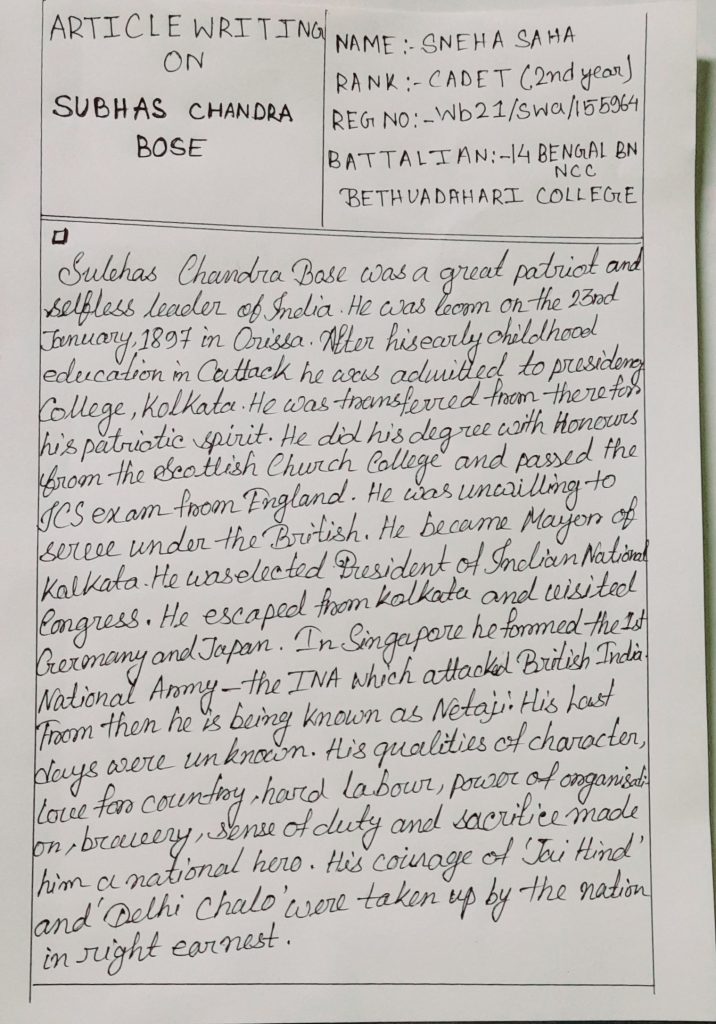 ARTICLE WRITING
ON
SUBHAS CHANDRA
BOSE
NAME :- SNEHA SAHA
RANK :- CADET (2nd year)
REG NO :- Wb21/swa/155964
BATTALIAN:-14 BENGAL BN
NCC
BETHUADAHARI COLLEGE
Subhas Chandra Bose was a great patriot and
selfless leader of India. He was born on the 23rd
January, 1897 in Orissa. After his early childhood
education in Cuttack he was admitted to presidency
College, Kolkata. He was transferred from there for
his patriotic spirit. He did his degree with Honours
from the Scottish Church College and passed the
ICS exam from England. He was unwilling to
serve under the British. He became Mayor of
Kalkata. He was elected President of Indian National
Congress. He escaped from Kolkata and visited
Germany and Japan. In Singapore he formed the 1st
National Army – the INA which attacked British India.
From then he is being known as Netaji. His last
days were unknown. His qualities of character,
love for country, hard labour, power of organisati-
on, bravery, sense of duty and sacrifice made
him a national hero. His courage of 'Jai Hind'
and 'Delhi Chalo' were taken up by the nation
in right earnest.